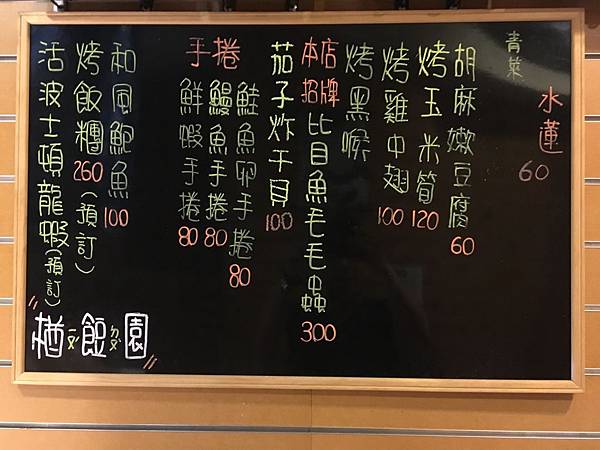 青菜
水蓮
60
胡麻嫩豆腐
60
烤玉米筍
120
烤雞中翅
100
烤黑喉
本店招牌
比目魚毛毛蟲
300
茄子炸干貝
100
手捲
鮭魚卵手捲
80
鰻魚手捲
80
鮮蝦手捲
80
和風鮑魚
100
烤飯糰
260
(預訂)
活波士頓龍蝦(預訂)
園